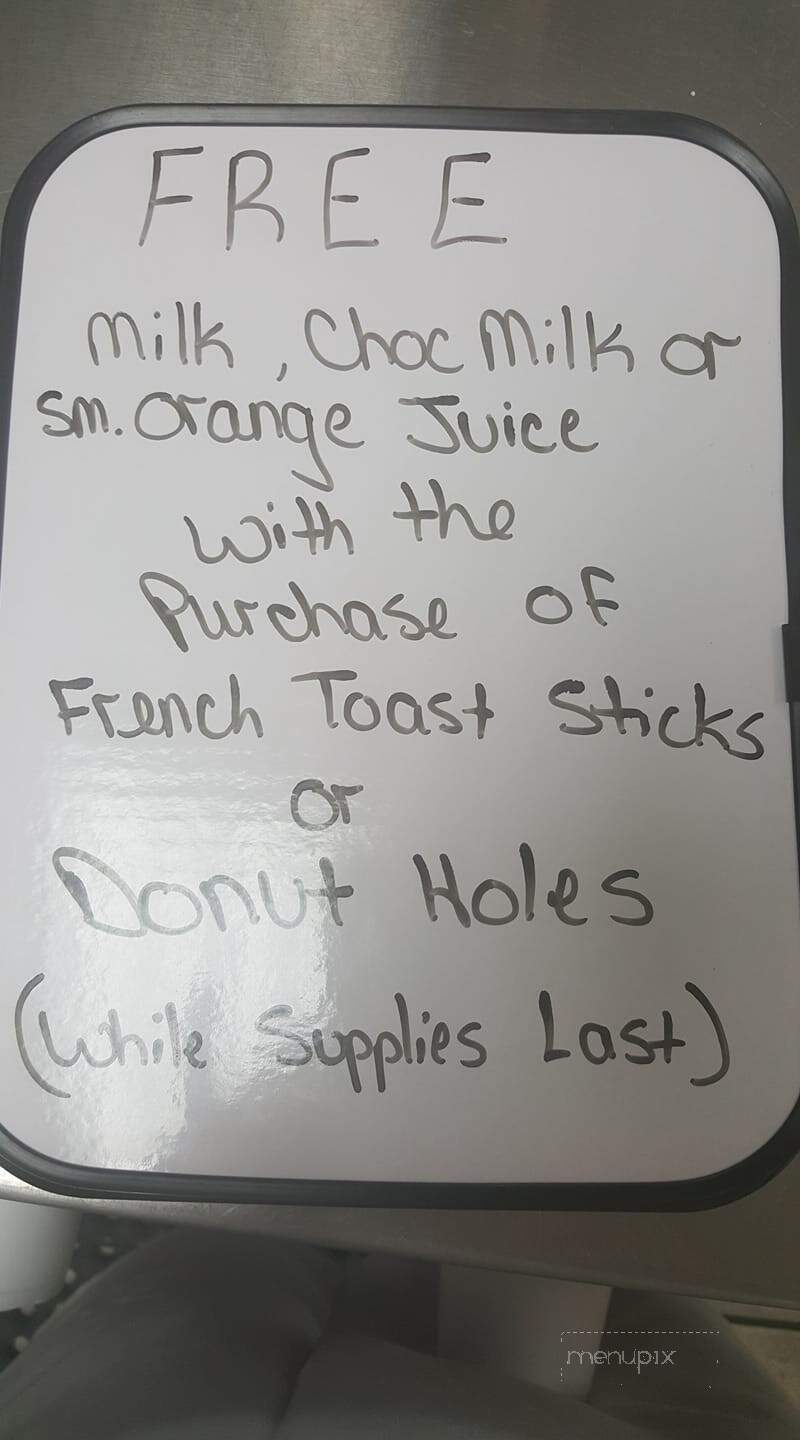 FREE
Milk, Choc Milk or
Sm. Orange Juice
with the
Purchase of
French Toast Sticks
or
Donut Holes
(While Supplies Last)
menupix